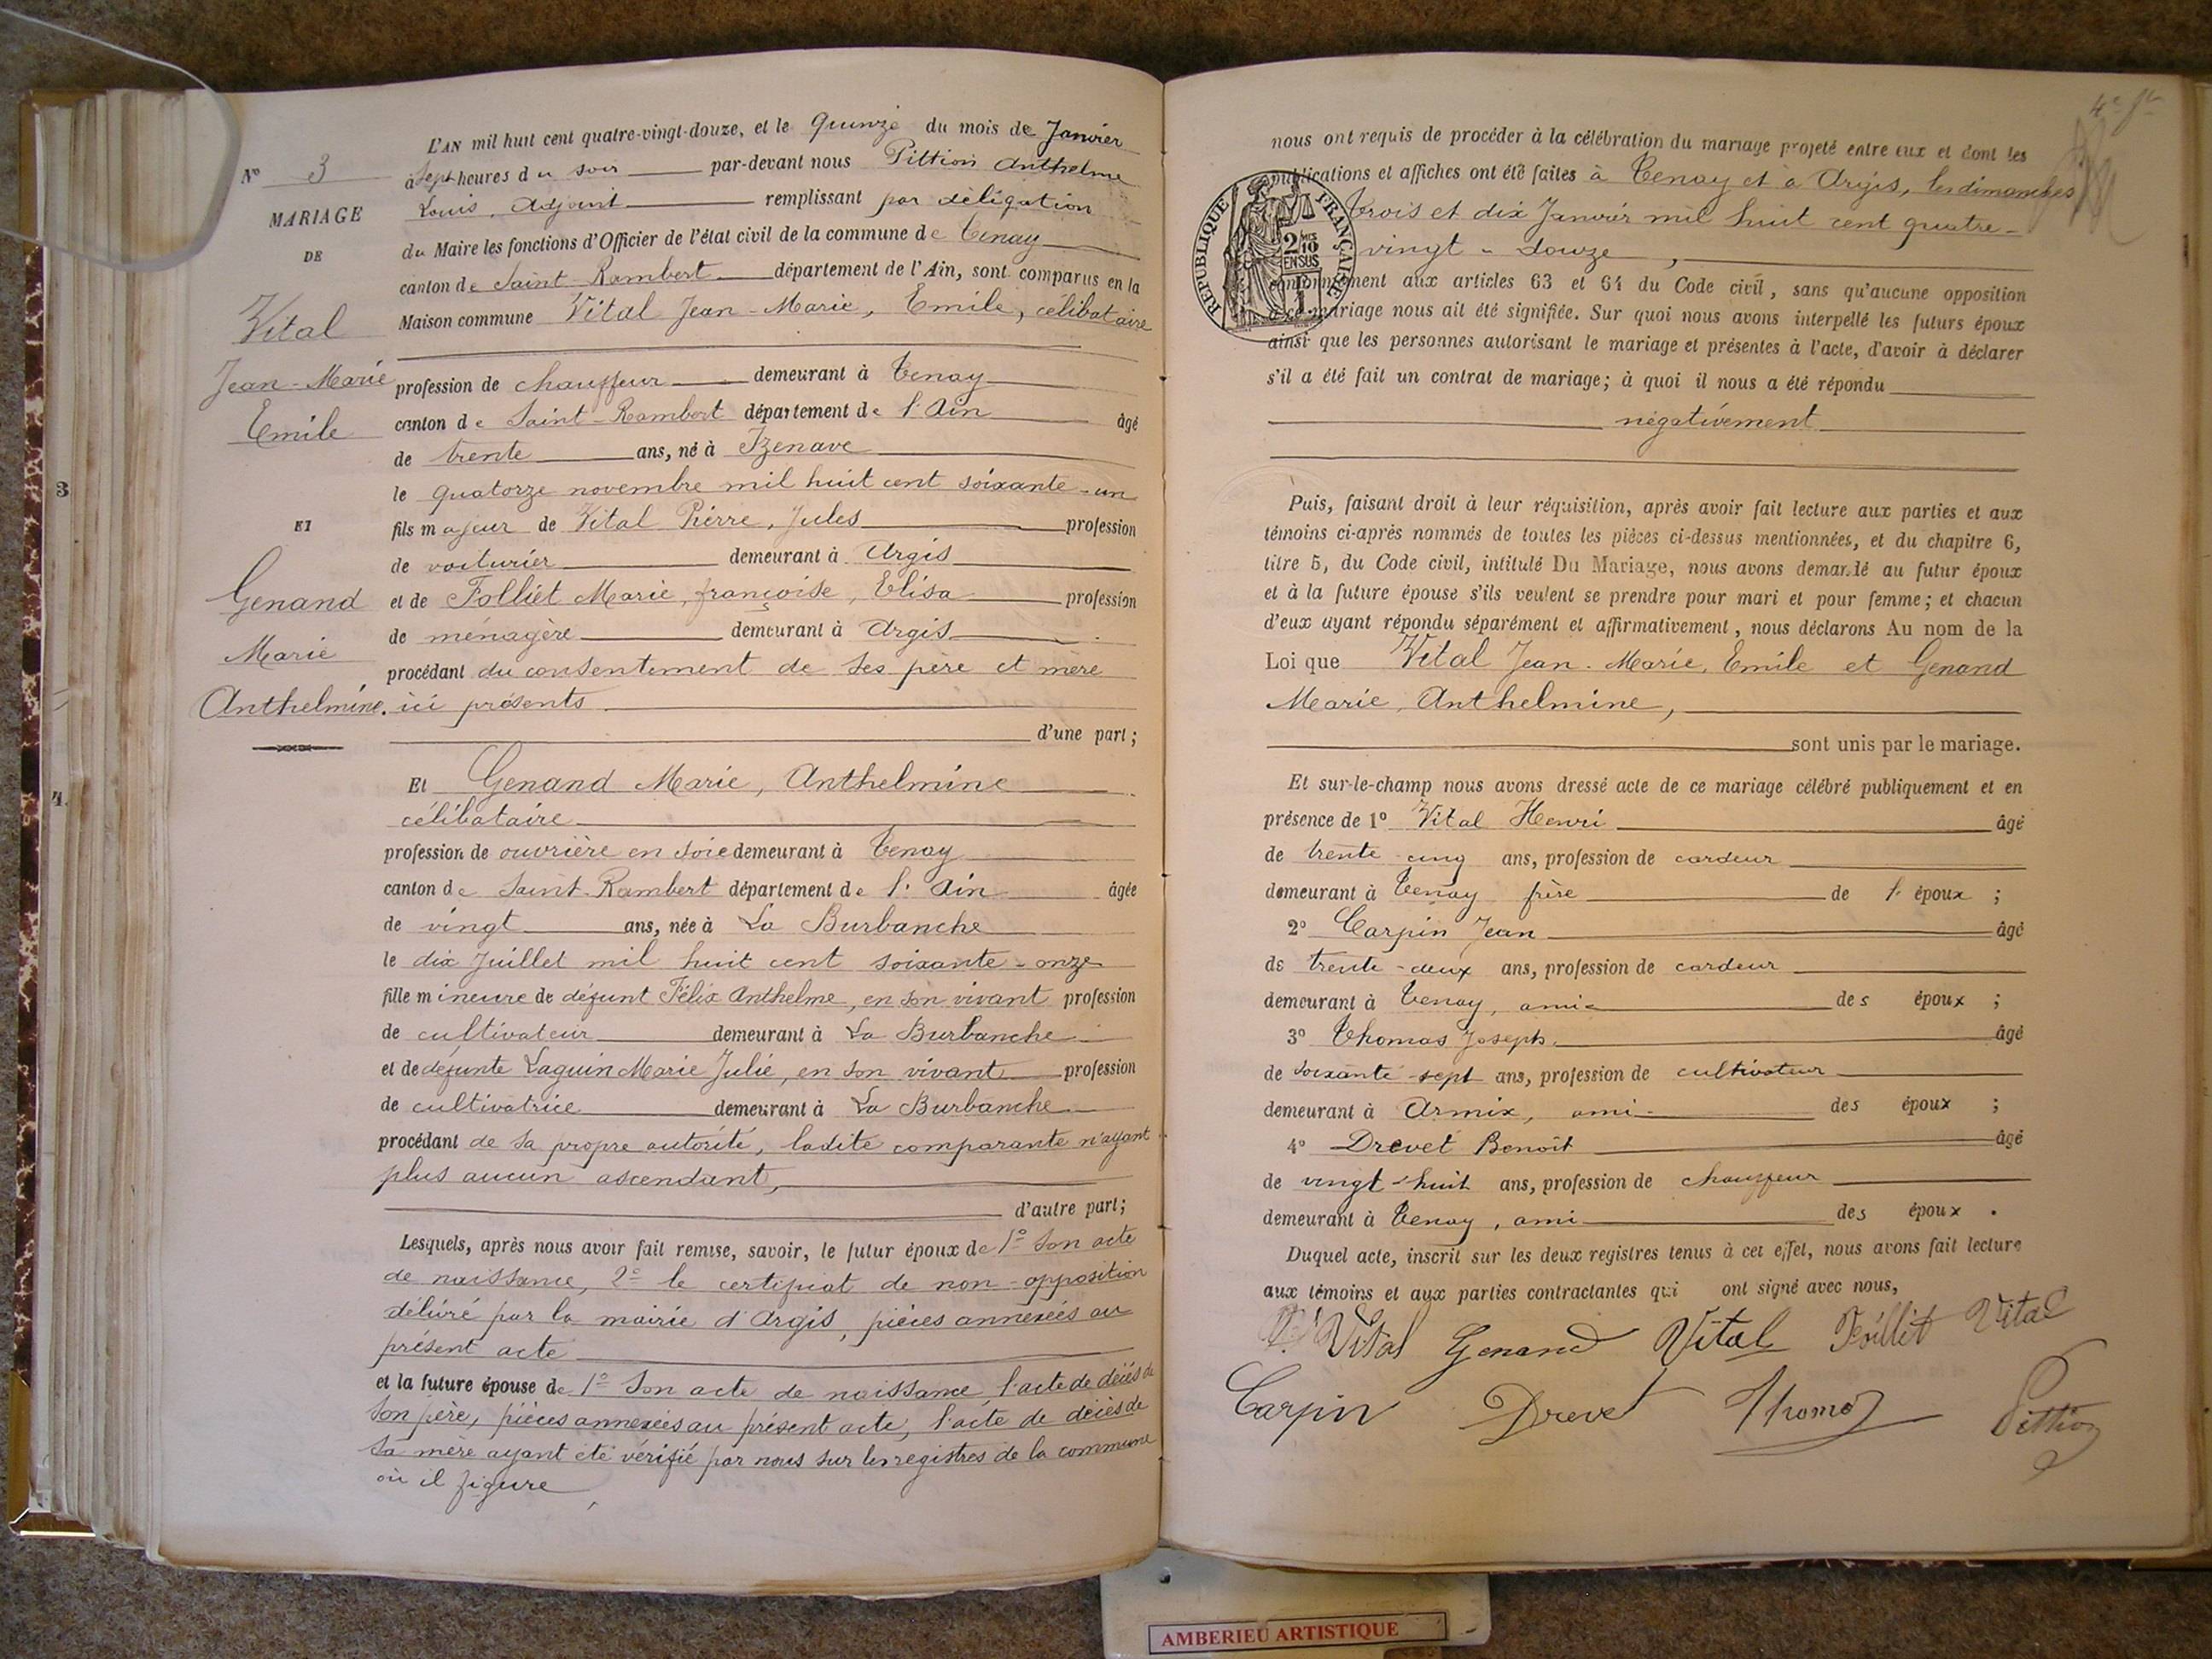 L'AN mil huit cent quatre-vingt-douze, et le Quinze du mois de Janvier
N° 3
à Sept heures du soir par-devant nous Pittion Anthelme
MARIAGE
Louis, Adjoint remplissant par déligation
DE
du Maire les fonctions d'Officier de l'état civil de la commune de Tenay
canton de Saint-Rambert département de l'Ain, sont comparus en la
Vital
Maison commune Vital Jean-Marie, Emile, célibataire
Jean-Marie
profession de chauffeur demeurant à Tenay
Emile
canton de Saint-Rambert département de l'Ain âgé
de trente ans, né à Izenave
3
le quatorze novembre mil huit cent soixante-un
ET
fils majeur de Vital Pierre, Jules profession
de voiturier demeurant à Argis
Genand
et de Folliet Marie, françoise, Elisa profession
de ménagère demeurant à Argis
Marie
procédant du consentement de ses père et mère
Anthelmine.
ici présents
d'une part;
Et Genand Marie, Anthelmine
4.
célibataire
profession de ouvrière en soie demeurant à Tenay
canton de Saint-Rambert département de l'Ain âgée
de vingt ans, née à La Burbanche
le dix Juillet mil huit cent soixante-onze
fille mineure de défunt Félix Anthelme, en son vivant profession
de cultivateur demeurant à La Burbanche
et de défunte Laguin Marie Julie, en son vivant profession
de cultivatrice demeurant à La Burbanche
procédant de sa propre autorité, ladite comparante n'ayant
plus aucun ascendant,
d'autre part;
Lesquels, après nous avoir fait remise, savoir, le futur époux de 1° Son acte
de naissance, 2° le certificat de non-opposition
délivré par la mairie d'Argis, pièces annexées au
présent acte
et la future épouse de 1° Son acte de naissance l'acte de décès de
son père, pièces annexées au présent acte, l'acte de décès de
sa mère ayant été vérifié par nous sur les registres de la commune
où il figure
4e ft
nous ont requis de procéder à la célébration du mariage projeté entre eux et dont les
publications et affiches ont été faites à Tenay et à Argis, les dimanches
trois et dix Janvier mil huit cent quatre-
vingt-douze,
RÉPUBLIQUE FRANÇAISE
2/10
EN SUS
conformément aux articles 63 et 64 du Code civil, sans qu'aucune opposition
à ce mariage nous ait été signifiée. Sur quoi nous avons interpellé les futurs époux
ainsi que les personnes autorisant le mariage et présentes à l'acte, d'avoir à déclarer
s'il a été fait un contrat de mariage; à quoi il nous a été répondu
négativement
Puis, faisant droit à leur réquisition, après avoir fait lecture aux parties et aux
témoins ci-après nommés de toutes les pièces ci-dessus mentionnées, et du chapitre 6,
titre 5, du Code civil, intitulé Du Mariage, nous avons demandé au futur époux
et à la future épouse s'ils veulent se prendre pour mari et pour femme; et chacun
d'eux ayant répondu séparément et affirmativement, nous déclarons Au nom de la
Loi que Vital Jean-Marie, Emile et Genand
Marie, Anthelmine,
sont unis par le mariage.
Et sur-le-champ nous avons dressé acte de ce mariage célébré publiquement et en
présence de 1° Vital Henri âgé
de trente-cinq ans, profession de cardeur
demeurant à Tenay frère de l'époux;
2° Carpin Jean âgé
de trente-deux ans, profession de cardeur
demeurant à Tenay, ami des époux;
3° Thomas Joseph âgé
de soixante-sept ans, profession de cultivateur
demeurant à Armix, ami des époux;
4° Drevet Benoît âgé
de vingt-huit ans, profession de chauffeur
demeurant à Tenay, ami des époux.
Duquel acte, inscrit sur les deux registres tenus à cet effet, nous avons fait lecture
aux témoins et aux parties contractantes qui ont signé avec nous,
Vital Genand Vital Folliet Vital
Carpin Drevet Thomas Pittion
AMBERIEU ARTISTIQUE